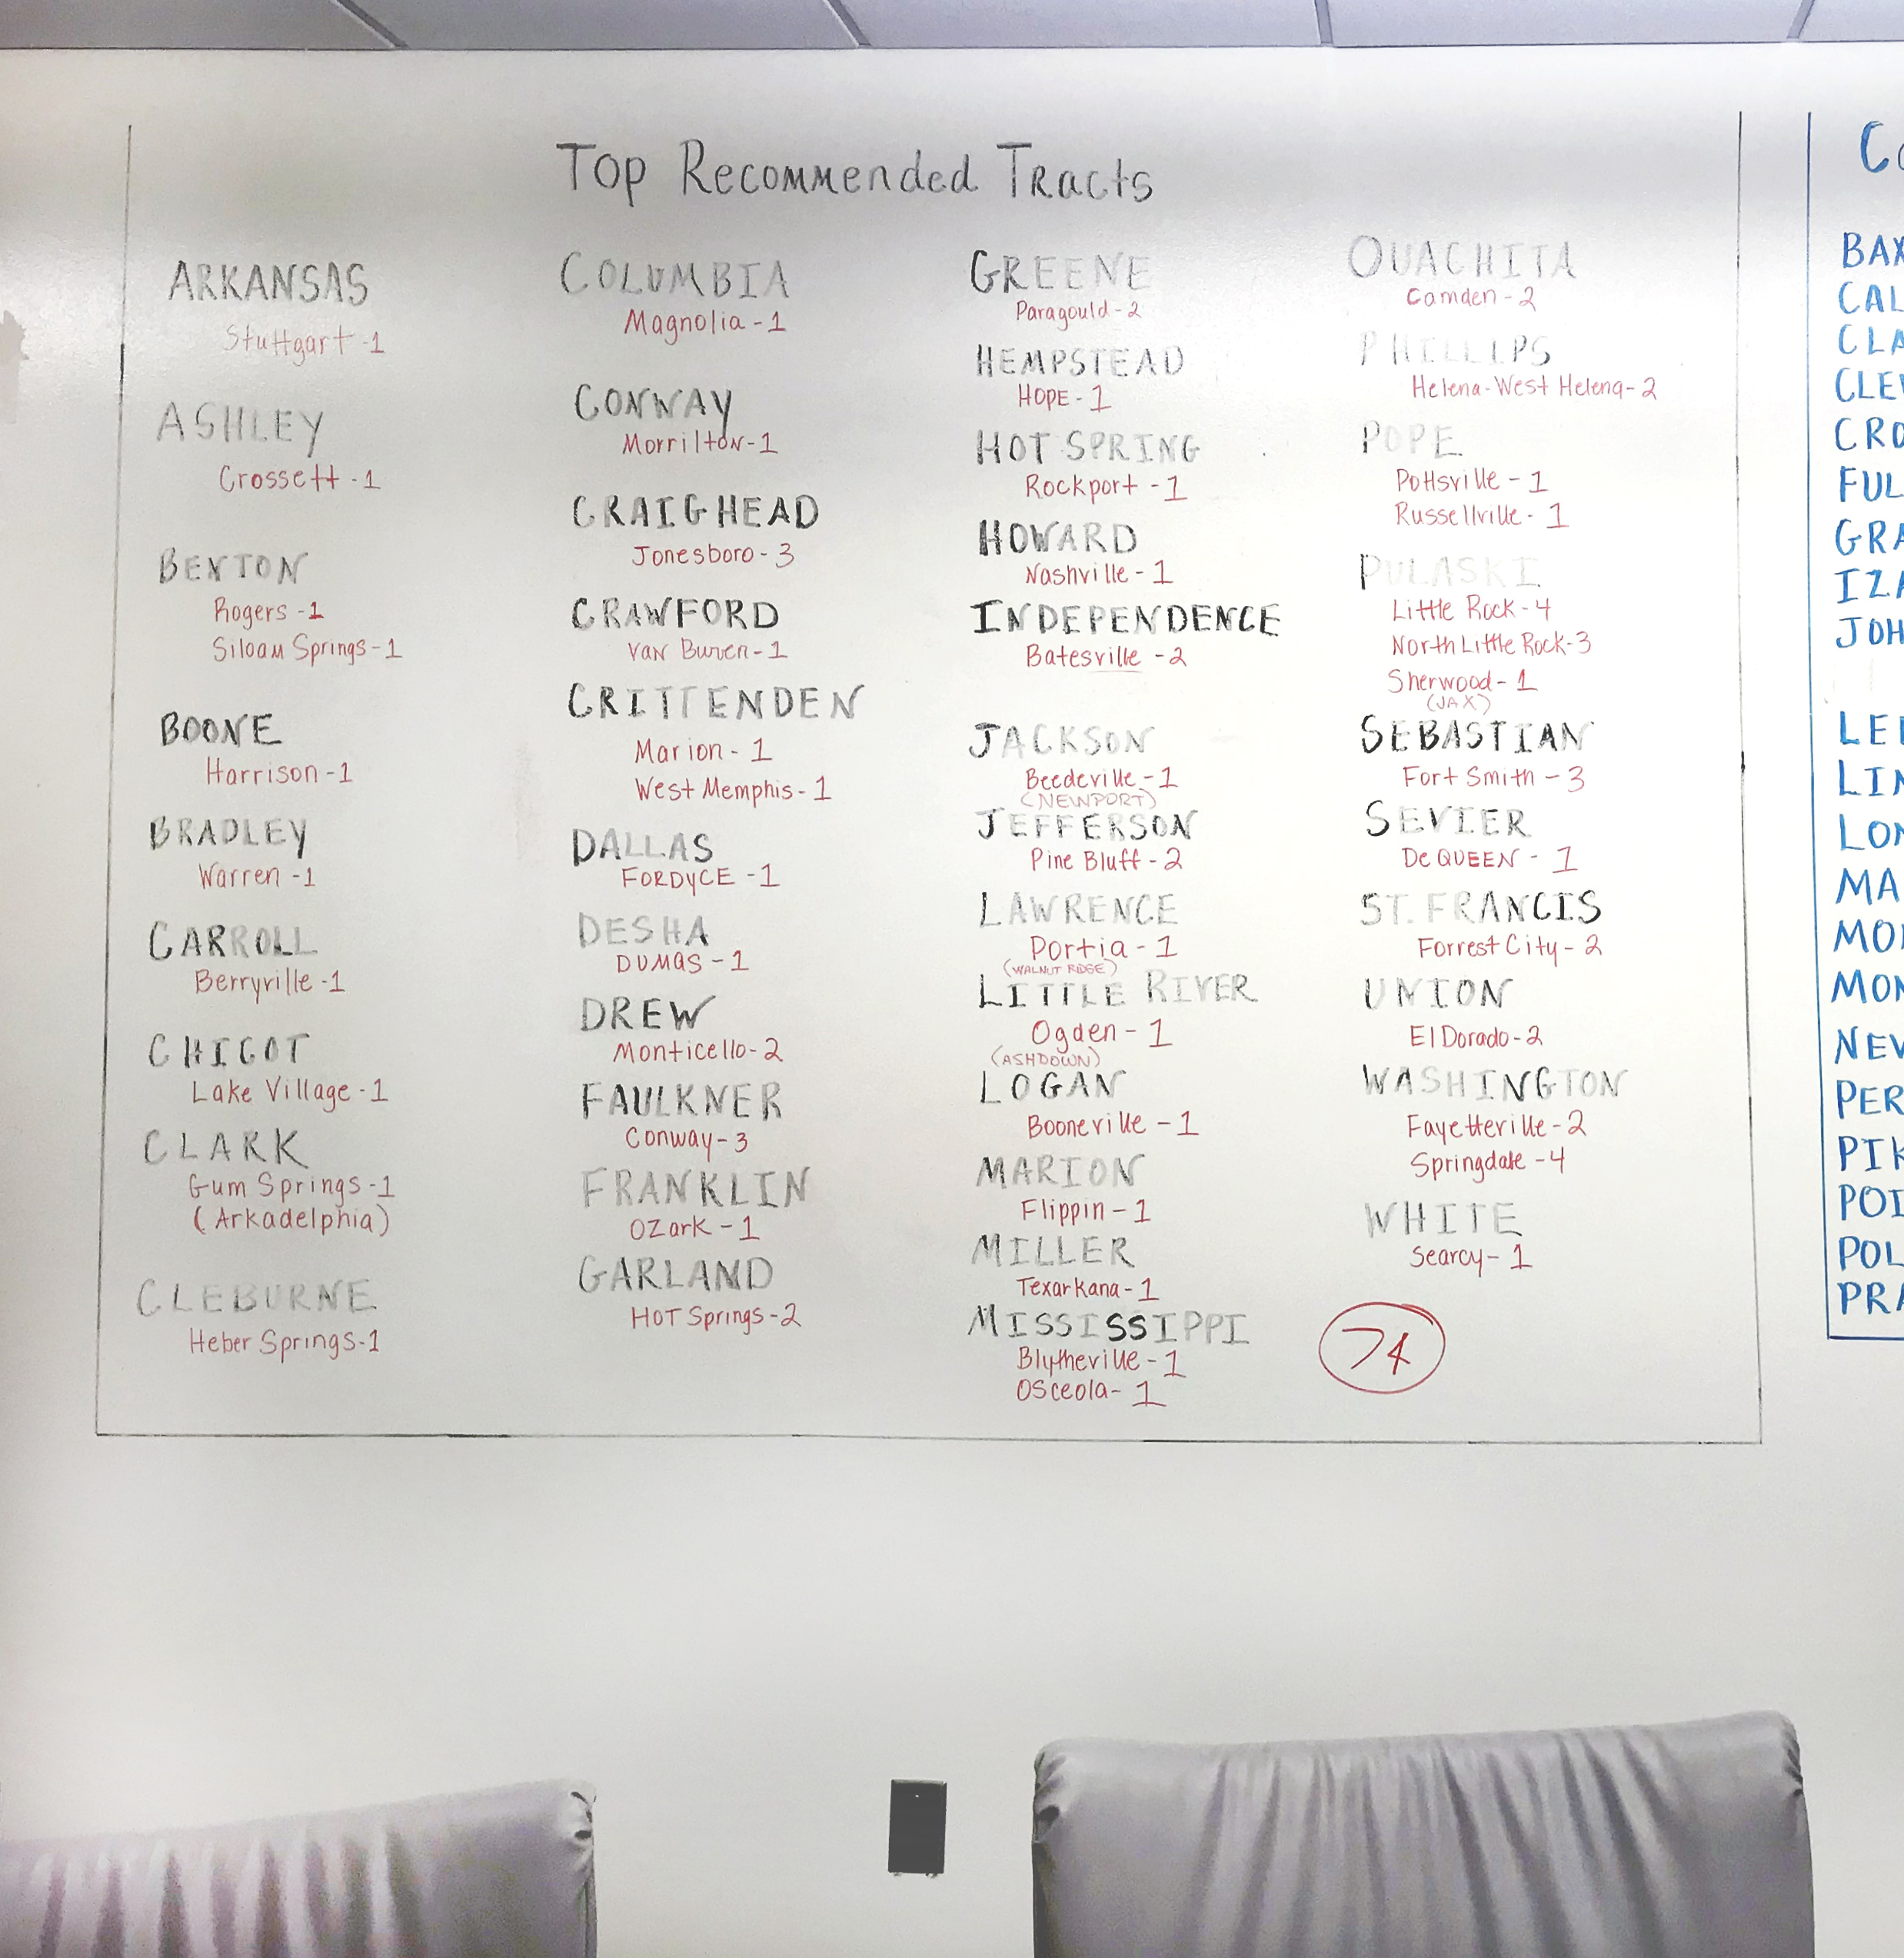 Top Recommended Tracts
ARKANSAS
Stuttgart - 1
ASHLEY
Crossett - 1
BENTON
Rogers - 1
Siloam Springs - 1
BOONE
Harrison - 1
BRADLEY
Warren - 1
CARROLL
Berryville - 1
CHICOT
Lake Village - 1
CLARK
Gum Springs - 1
(Arkadelphia)
CLEBURNE
Heber Springs - 1
COLUMBIA
Magnolia - 1
CONWAY
Morrilton - 1
CRAIGHEAD
Jonesboro - 3
CRAWFORD
Van Buren - 1
CRITTENDEN
Marion - 1
West Memphis - 1
DALLAS
FORDYCE - 1
DESHA
DUMAS - 1
DREW
Monticello - 2
FAULKNER
Conway - 3
FRANKLIN
Ozark - 1
GARLAND
HOT Springs - 2
GREENE
Paragould - 2
HEMPSTEAD
HOPE - 1
HOT SPRING
Rockport - 1
HOWARD
Nashville - 1
INDEPENDENCE
Batesville - 2
JACKSON
Beedeville - 1
(NEWPORT)
JEFFERSON
Pine Bluff - 2
LAWRENCE
Portia - 1
(WALNUT RIDGE)
LITTLE RIVER
Ogden - 1
(ASHDOWN)
LOGAN
Booneville - 1
MARION
Flippin - 1
MILLER
Texarkana - 1
MISSISSIPPI
Blytheville - 1
Osceola - 1
OUACHITA
Camden - 2
PHILLIPS
Helena-West Helena - 2
POPE
Pottsville - 1
Russellville - 1
PULASKI
Little Rock - 4
North Little Rock - 3
Sherwood - 1
(JAX)
SEBASTIAN
Fort Smith - 3
SEVIER
De QUEEN - 1
ST. FRANCIS
Forrest City - 2
UNION
El Dorado - 2
WASHINGTON
Fayetteville - 2
Springdale - 4
WHITE
Searcy - 1
74
BAX
CAL
CLA
CLEV
CRO
FUL
GRA
IZA
JOH
LEE
LIN
LON
MA
MO
MON
NEV
PER
PIK
POI
POL
PRA